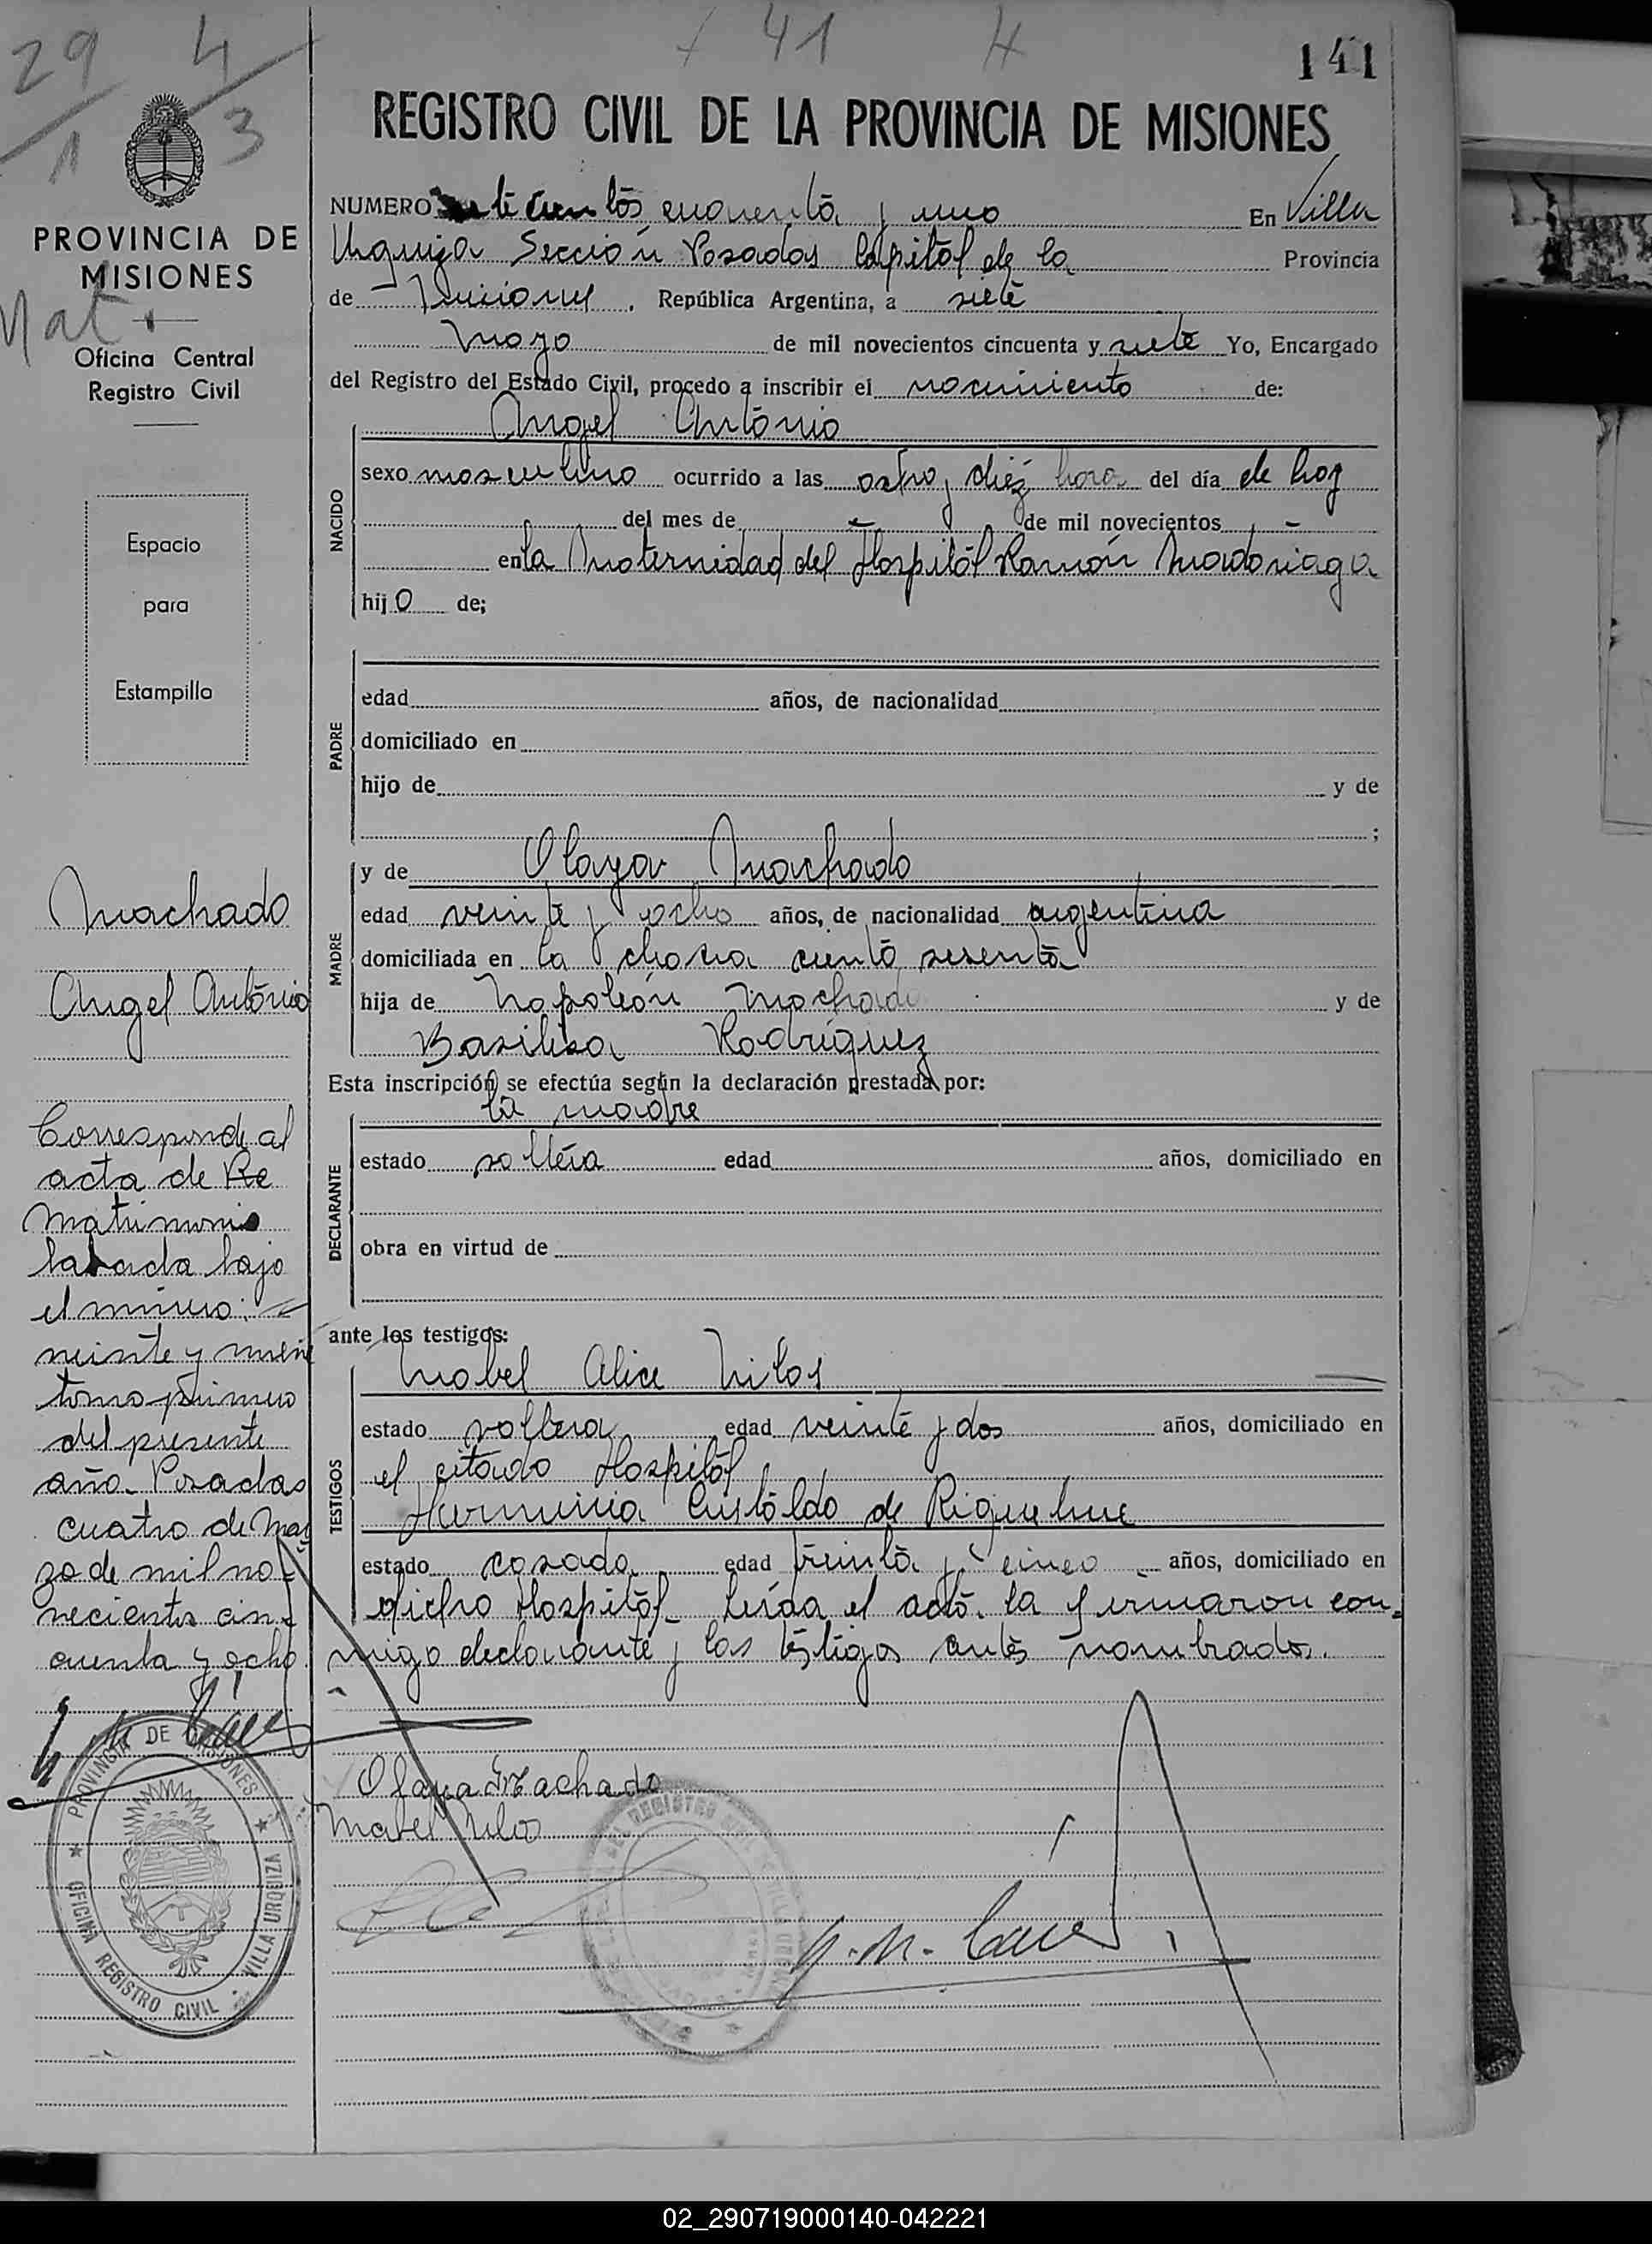 29 4 + 41 4 141
1 3
REGISTRO CIVIL DE LA PROVINCIA DE MISIONES
PROVINCIA DE
MISIONES
Nat
Oficina Central
Registro Civil
Espacio
para
Estampilla
Machado
Angel Antonio
Corresponde al
acta de Re
Matrimonio
labrada bajo
el número:
veinte y nueve
tomo primero
del presente
año. Posadas
cuatro de Mar
zo de mil no-
vecientos cin-
cuenta y ocho
PROVINCIA DE MISIONES
OFICINA REGISTRO CIVIL - VILLA URQUIZA
NUMERO cientos cuarenta y uno En Villa
Urquiza Sección Posadas Capital de la Provincia
de Misiones, República Argentina, a siete
Mayo de mil novecientos cincuenta y siete Yo, Encargado
del Registro del Estado Civil, procedo a inscribir el nacimiento de:
NACIDO
Angel Antonio
sexo masculino ocurrido a las ocho y diez hora del día de hoy
del mes de de mil novecientos
en la Maternidad del Hospital Ramón Madariaga
hijo de;
PADRE
edad años, de nacionalidad
domiciliado en
hijo de y de
;
MADRE
y de Olaya Machado
edad veinte y ocho años, de nacionalidad argentina
domiciliada en la chacra ciento sesenta
hija de Napoleón Machado y de
Basilisa Rodríguez
Esta inscripción se efectúa según la declaración prestada por:
DECLARANTE
la madre
estado soltera edad años, domiciliado en
obra en virtud de
ante los testigos:
TESTIGOS
Mabel Alice Nilos
estado soltera edad veinte y dos años, domiciliado en
el citado Hospital
Herminia Custoldo de Riquelme
estado casada edad treinta y cinco años, domiciliado en
dicho Hospital. Leída el acta, la firmaron con-
migo declarante y los testigos antes nombrados.
Olaya Machado
Mabel Nilos
02_290719000140-042221